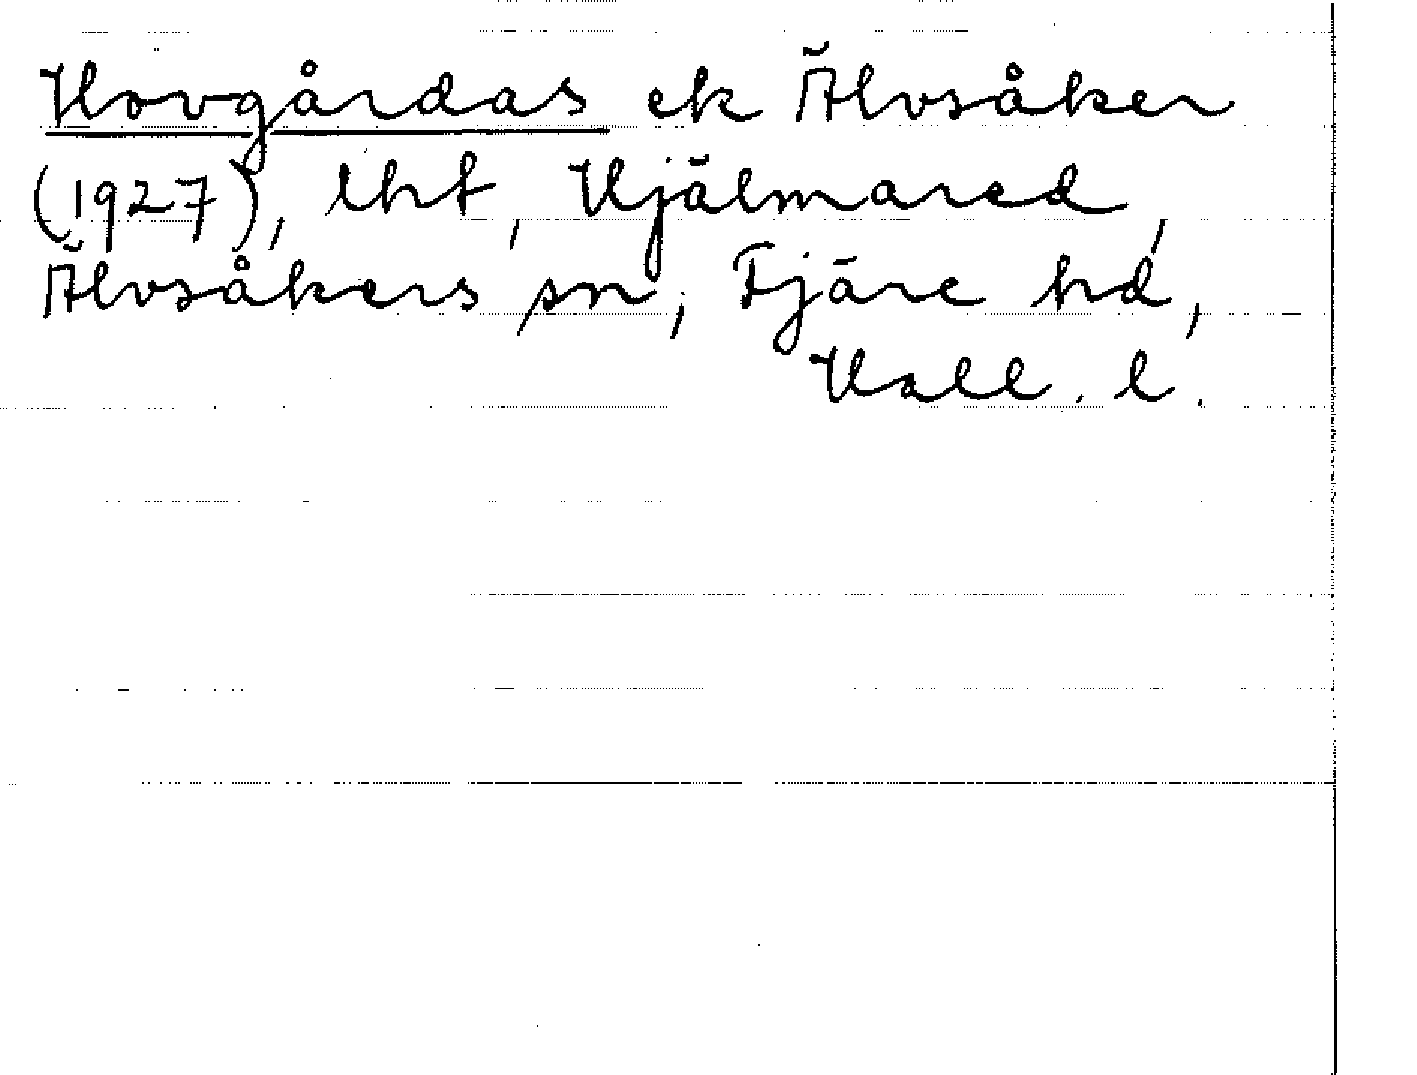 Hovgårdas ek Älvsåker
(1927), lht, Hjälmared,
Älvsåkers sn, Fjäre hd,
Hall. l.